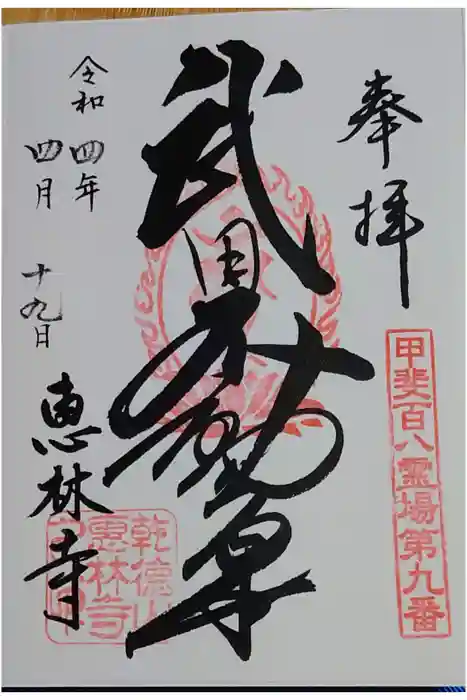 奉拝
甲斐百八霊場第九番
武田不動尊
令和四年
四月十九日
恵林寺